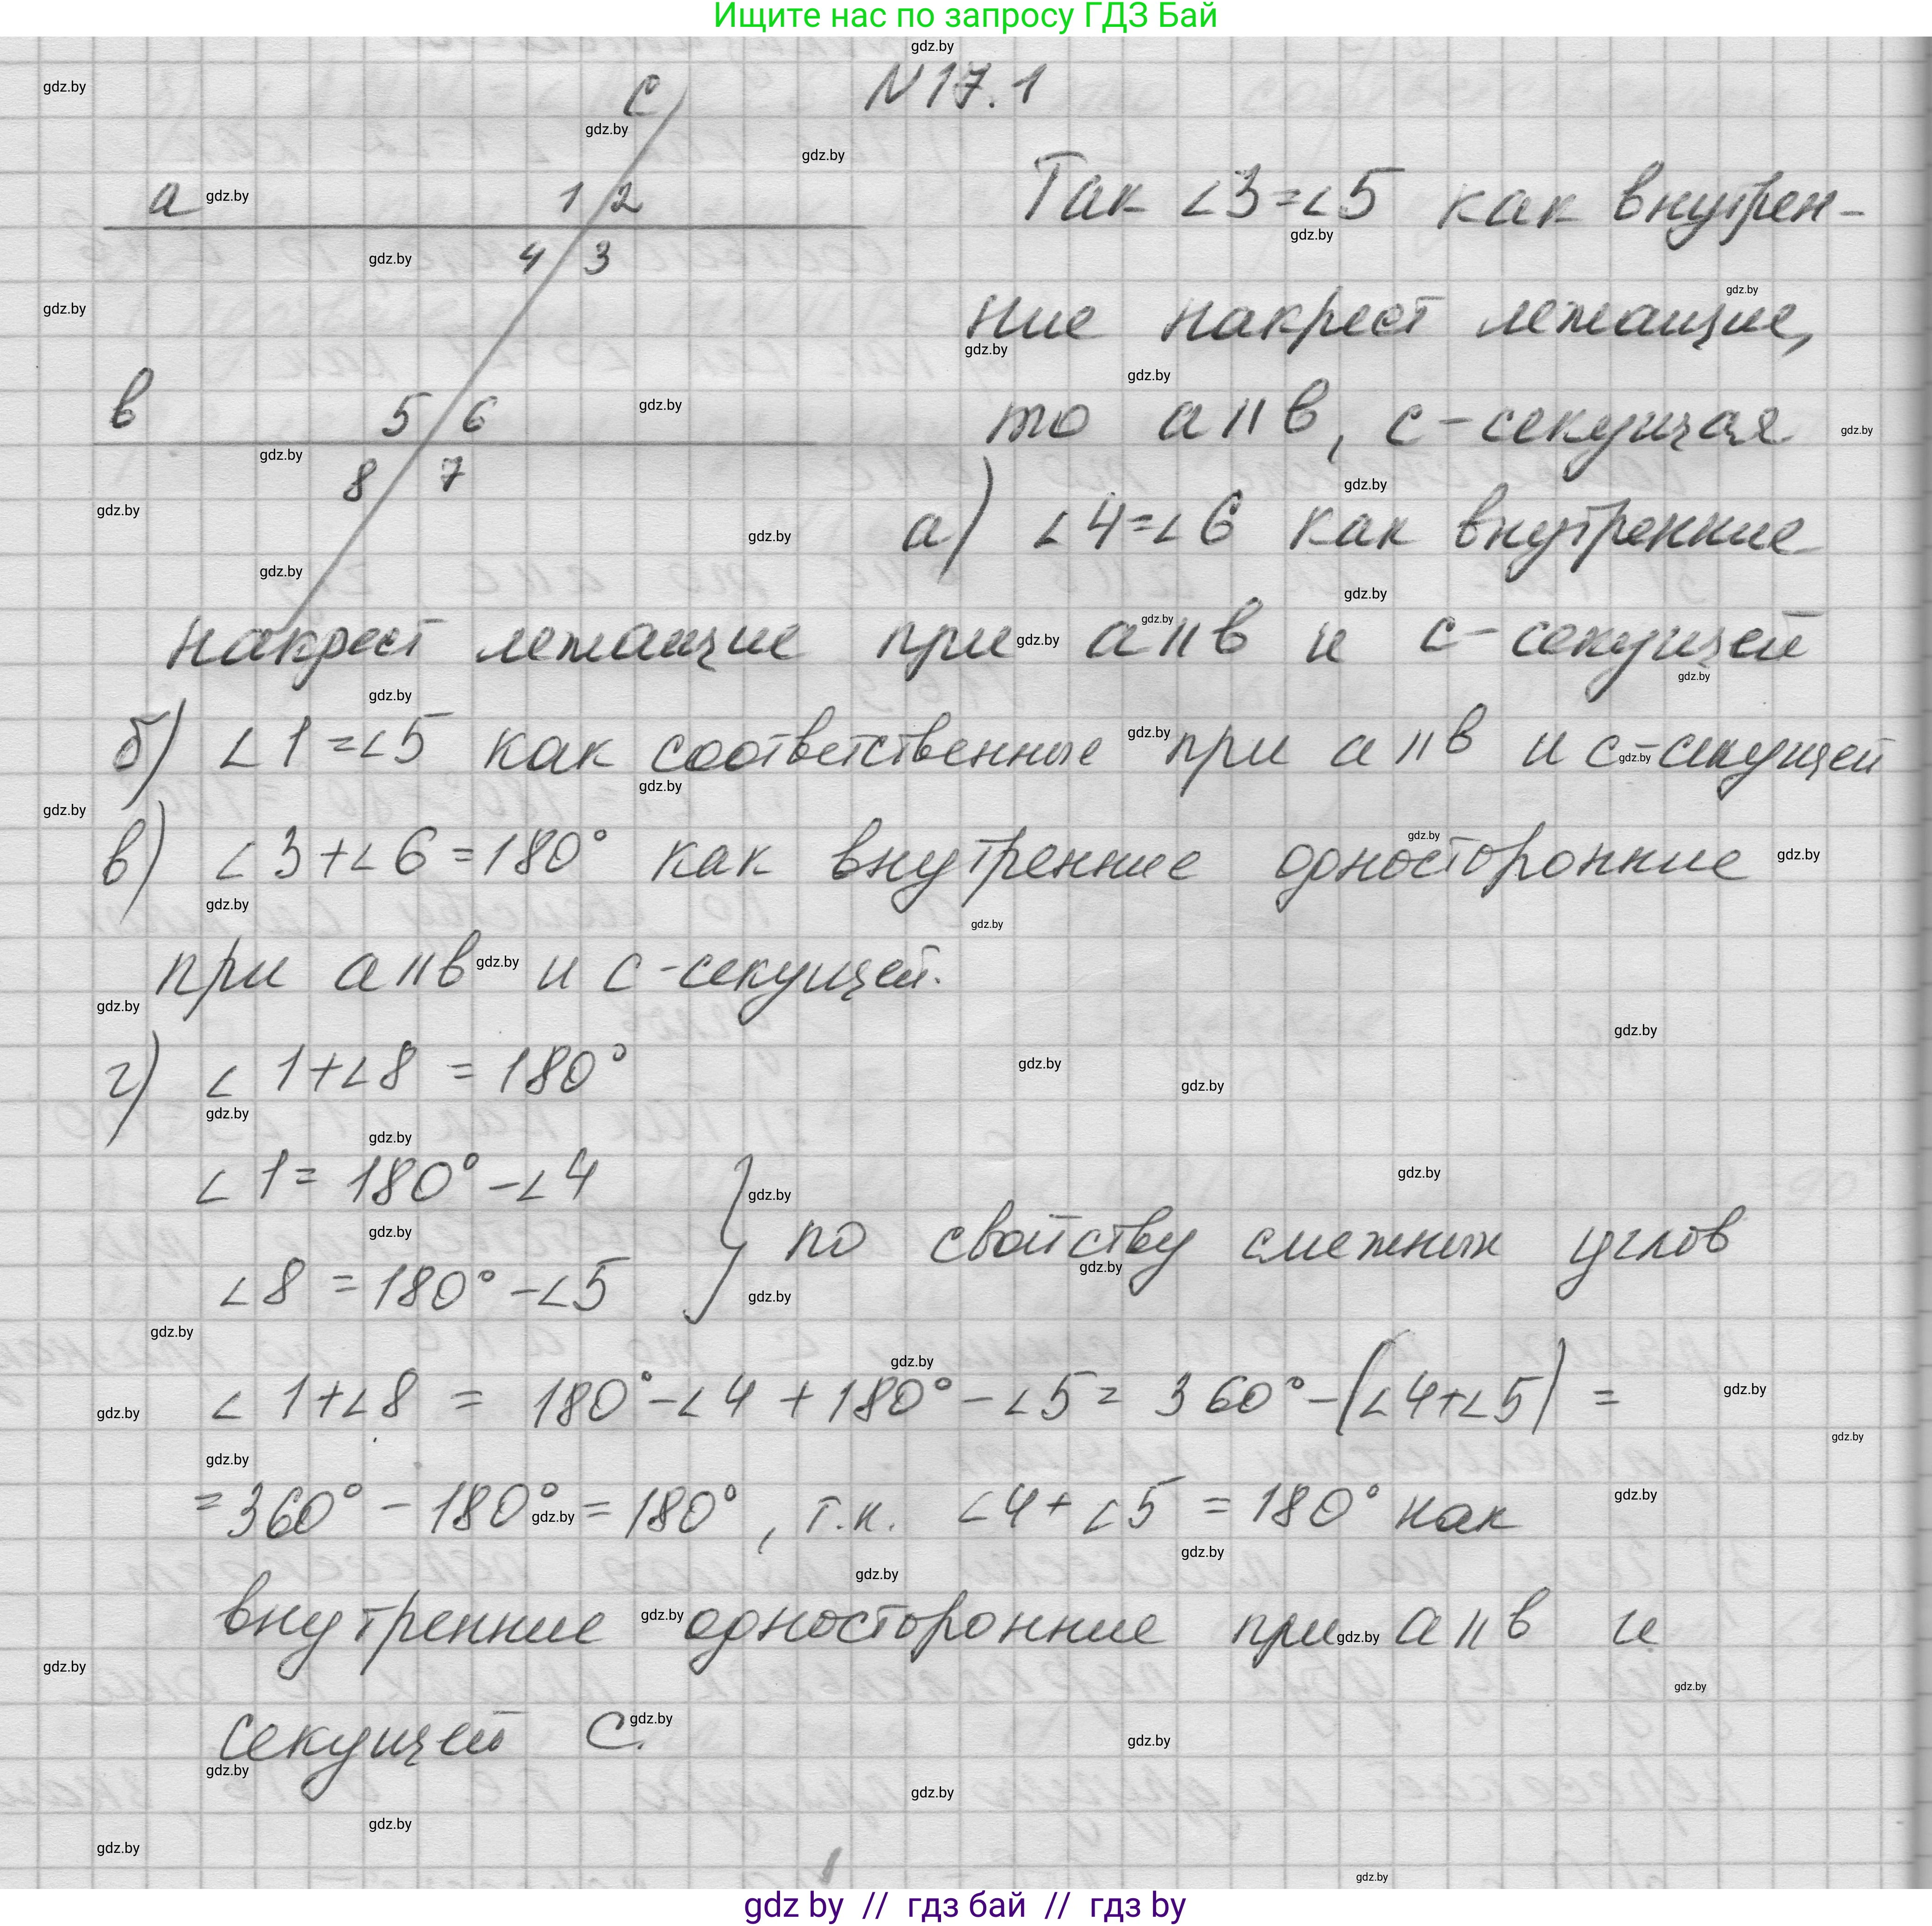 Ищите нас по запросу ГДЗ Бай
N17.1
c
a
1 2
4 3
в
5 6
8 7
Так ∠3=∠5 как внутрен-
ние накрест лежащие,
то a∥в, c-секущая
а) ∠4=∠6 как внутренние
накрест лежащие при a∥в и c-секущей
б) ∠1=∠5 как соответственные при a∥в и c-секущей
в) ∠3+∠6=180° как внутренние односторонние
при a∥в и c-секущей.
г) ∠1+∠8=180°
∠1=180°-∠4
∠8=180°-∠5
} по свойству смежных углов
∠1+∠8=180°-∠4+180°-∠5=360°-(∠4+∠5)=
=360°-180°=180°, т.к. ∠4+∠5=180° как
внутренние односторонние при a∥в и
секущей C.
gdz.by
gdz by // гдз бай // гдз by